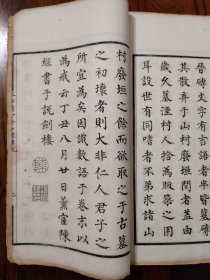 晉磚文字有吉語者半皆墓磚
其散棄于山村廢垣間者蓋由
歲久墓湮村人拾為服築之用
耳設世有同嗜者不弟求諸山
村廢垣之餘而欲取之于古墓
之初壞者則大非仁人君子之
所宜為矣因識數語于卷末以
為戒云丁丑八月廿日薰宦陳
經書于說劍樓